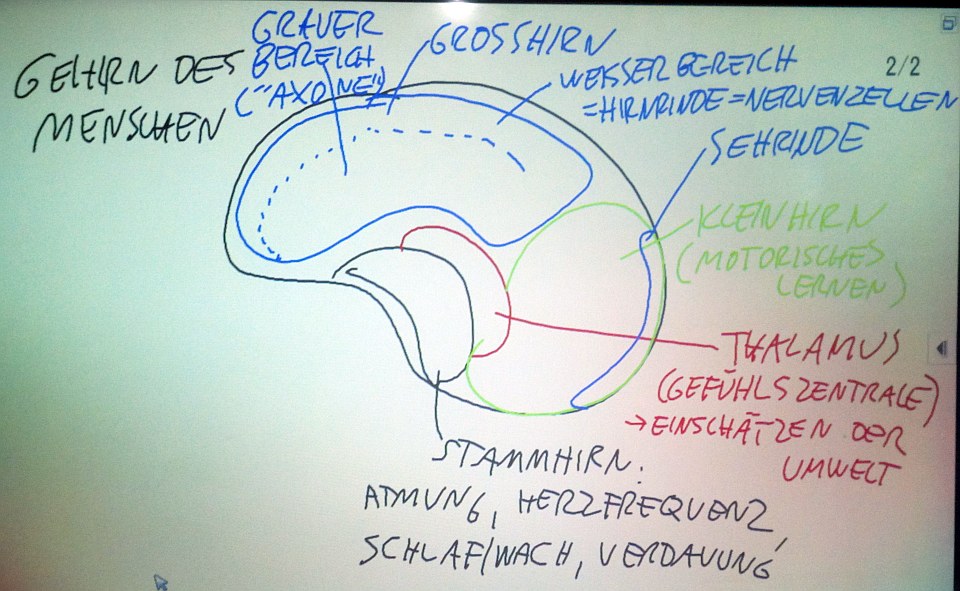 GEHIRN DES
MENSCHEN
GRAUER
BEREICH
("AXONE")
GROSSHIRN
WEISSER BEREICH
=HIRNRINDE=NERVENZELLEN
2/2
SEHRINDE
KLEINHIRN
(MOTORISCHES
LERNEN)
THALAMUS
(GEFÜHLSZENTRALE)
→EINSCHÄTZEN DER
UMWELT
STAMMHIRN:
ATMUNG, HERZFREQUENZ,
SCHLAF/WACH, VERDAUUNG